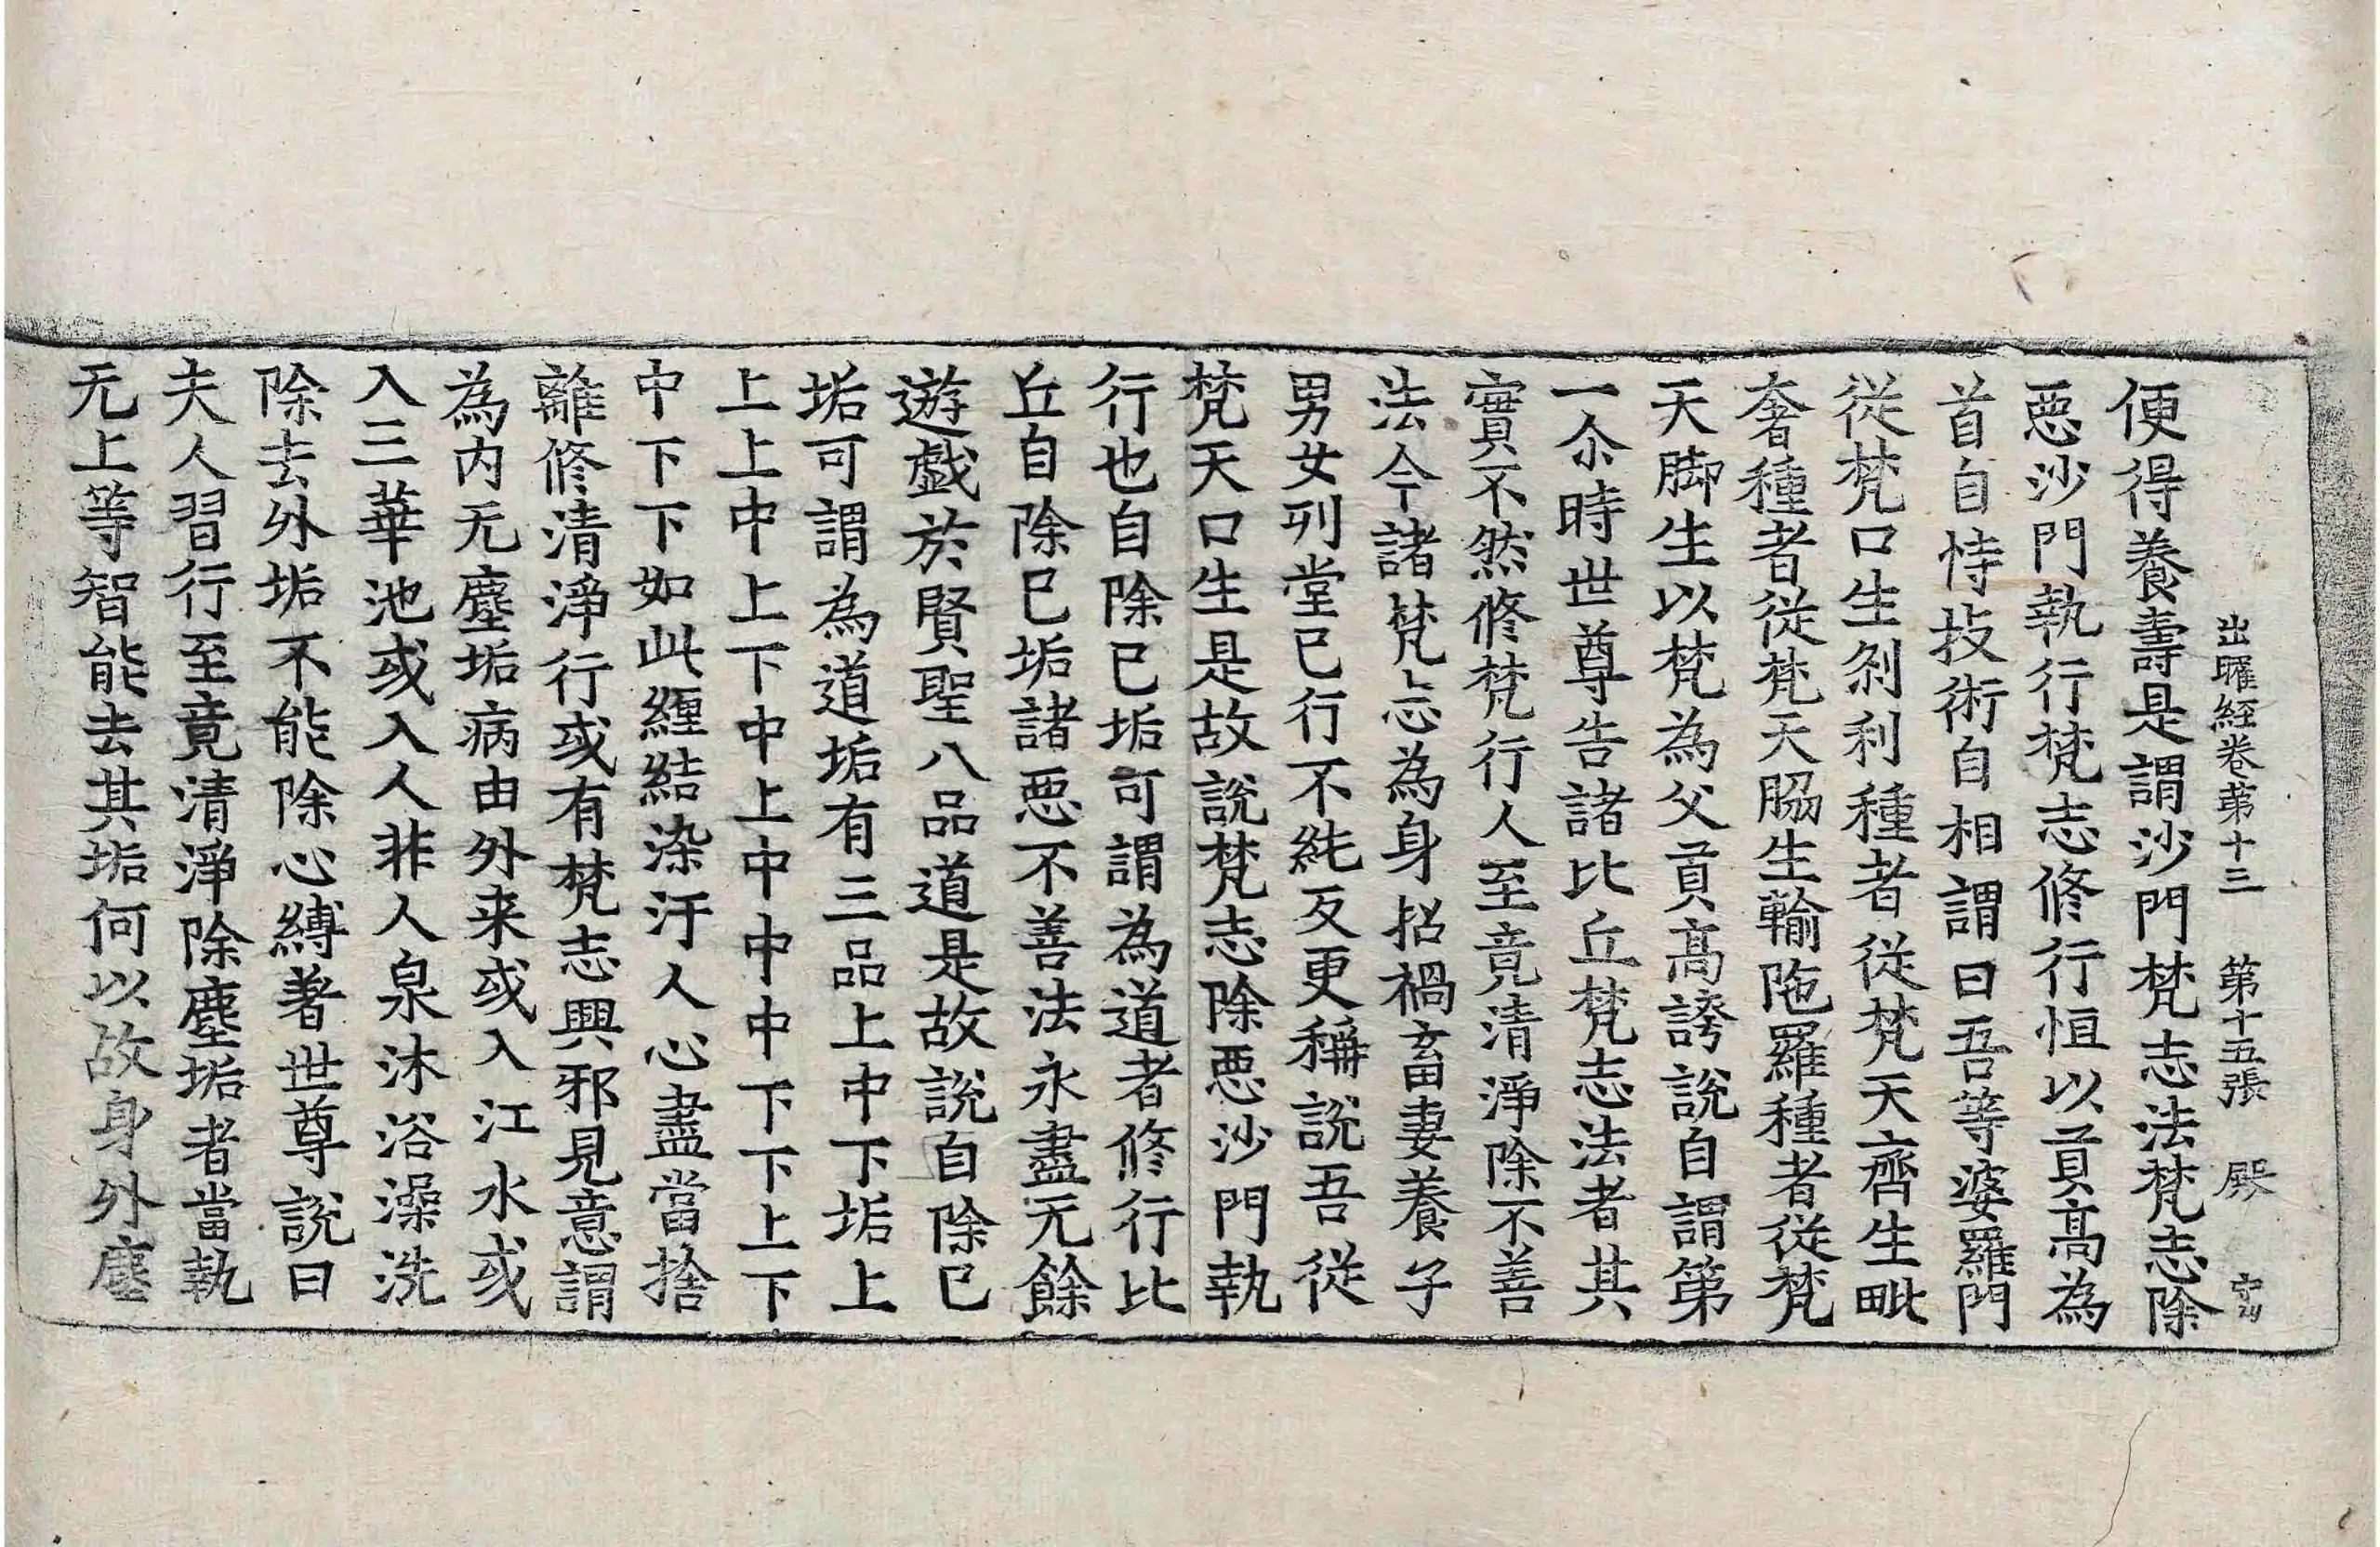 出曜經卷苐十三 第十五張 殿
便得養壽是謂沙門梵志法梵志除
惡沙門執行梵志修行恒以貢高為
首自恃技術自相謂曰吾等婆羅門
從梵口生剎利種者從梵天齊生毗
奢種者從梵天脇生輸陁羅種者從梵
天脚生以梵為父貢高誇說自謂第
一尒時世尊告諸比丘梵志法者其
實不然修梵行人至竟清淨除不善
法今諸梵志為身招禍畜妻養子
男女列堂己行不純反更稱說吾從
梵天口生是故說梵志除惡沙門執
行也自除己垢可謂為道者修行比
丘自除己垢諸惡不善法永盡无餘
遊戲於賢聖八品道是故說自除己
垢可謂為道垢有三品上中下垢上
上上中上下中上中中中下下上下
中下下如此纒結染汙人心盡當捨
離修清淨行或有梵志興邪見意謂
為內无塵垢病由外来或入江水或
入三華池或入人非人泉沐浴澡洗
除去外垢不能除心縛著世尊說曰
夫人習行至竟清淨除塵垢者當執
无上等智能去其垢何以故身外塵